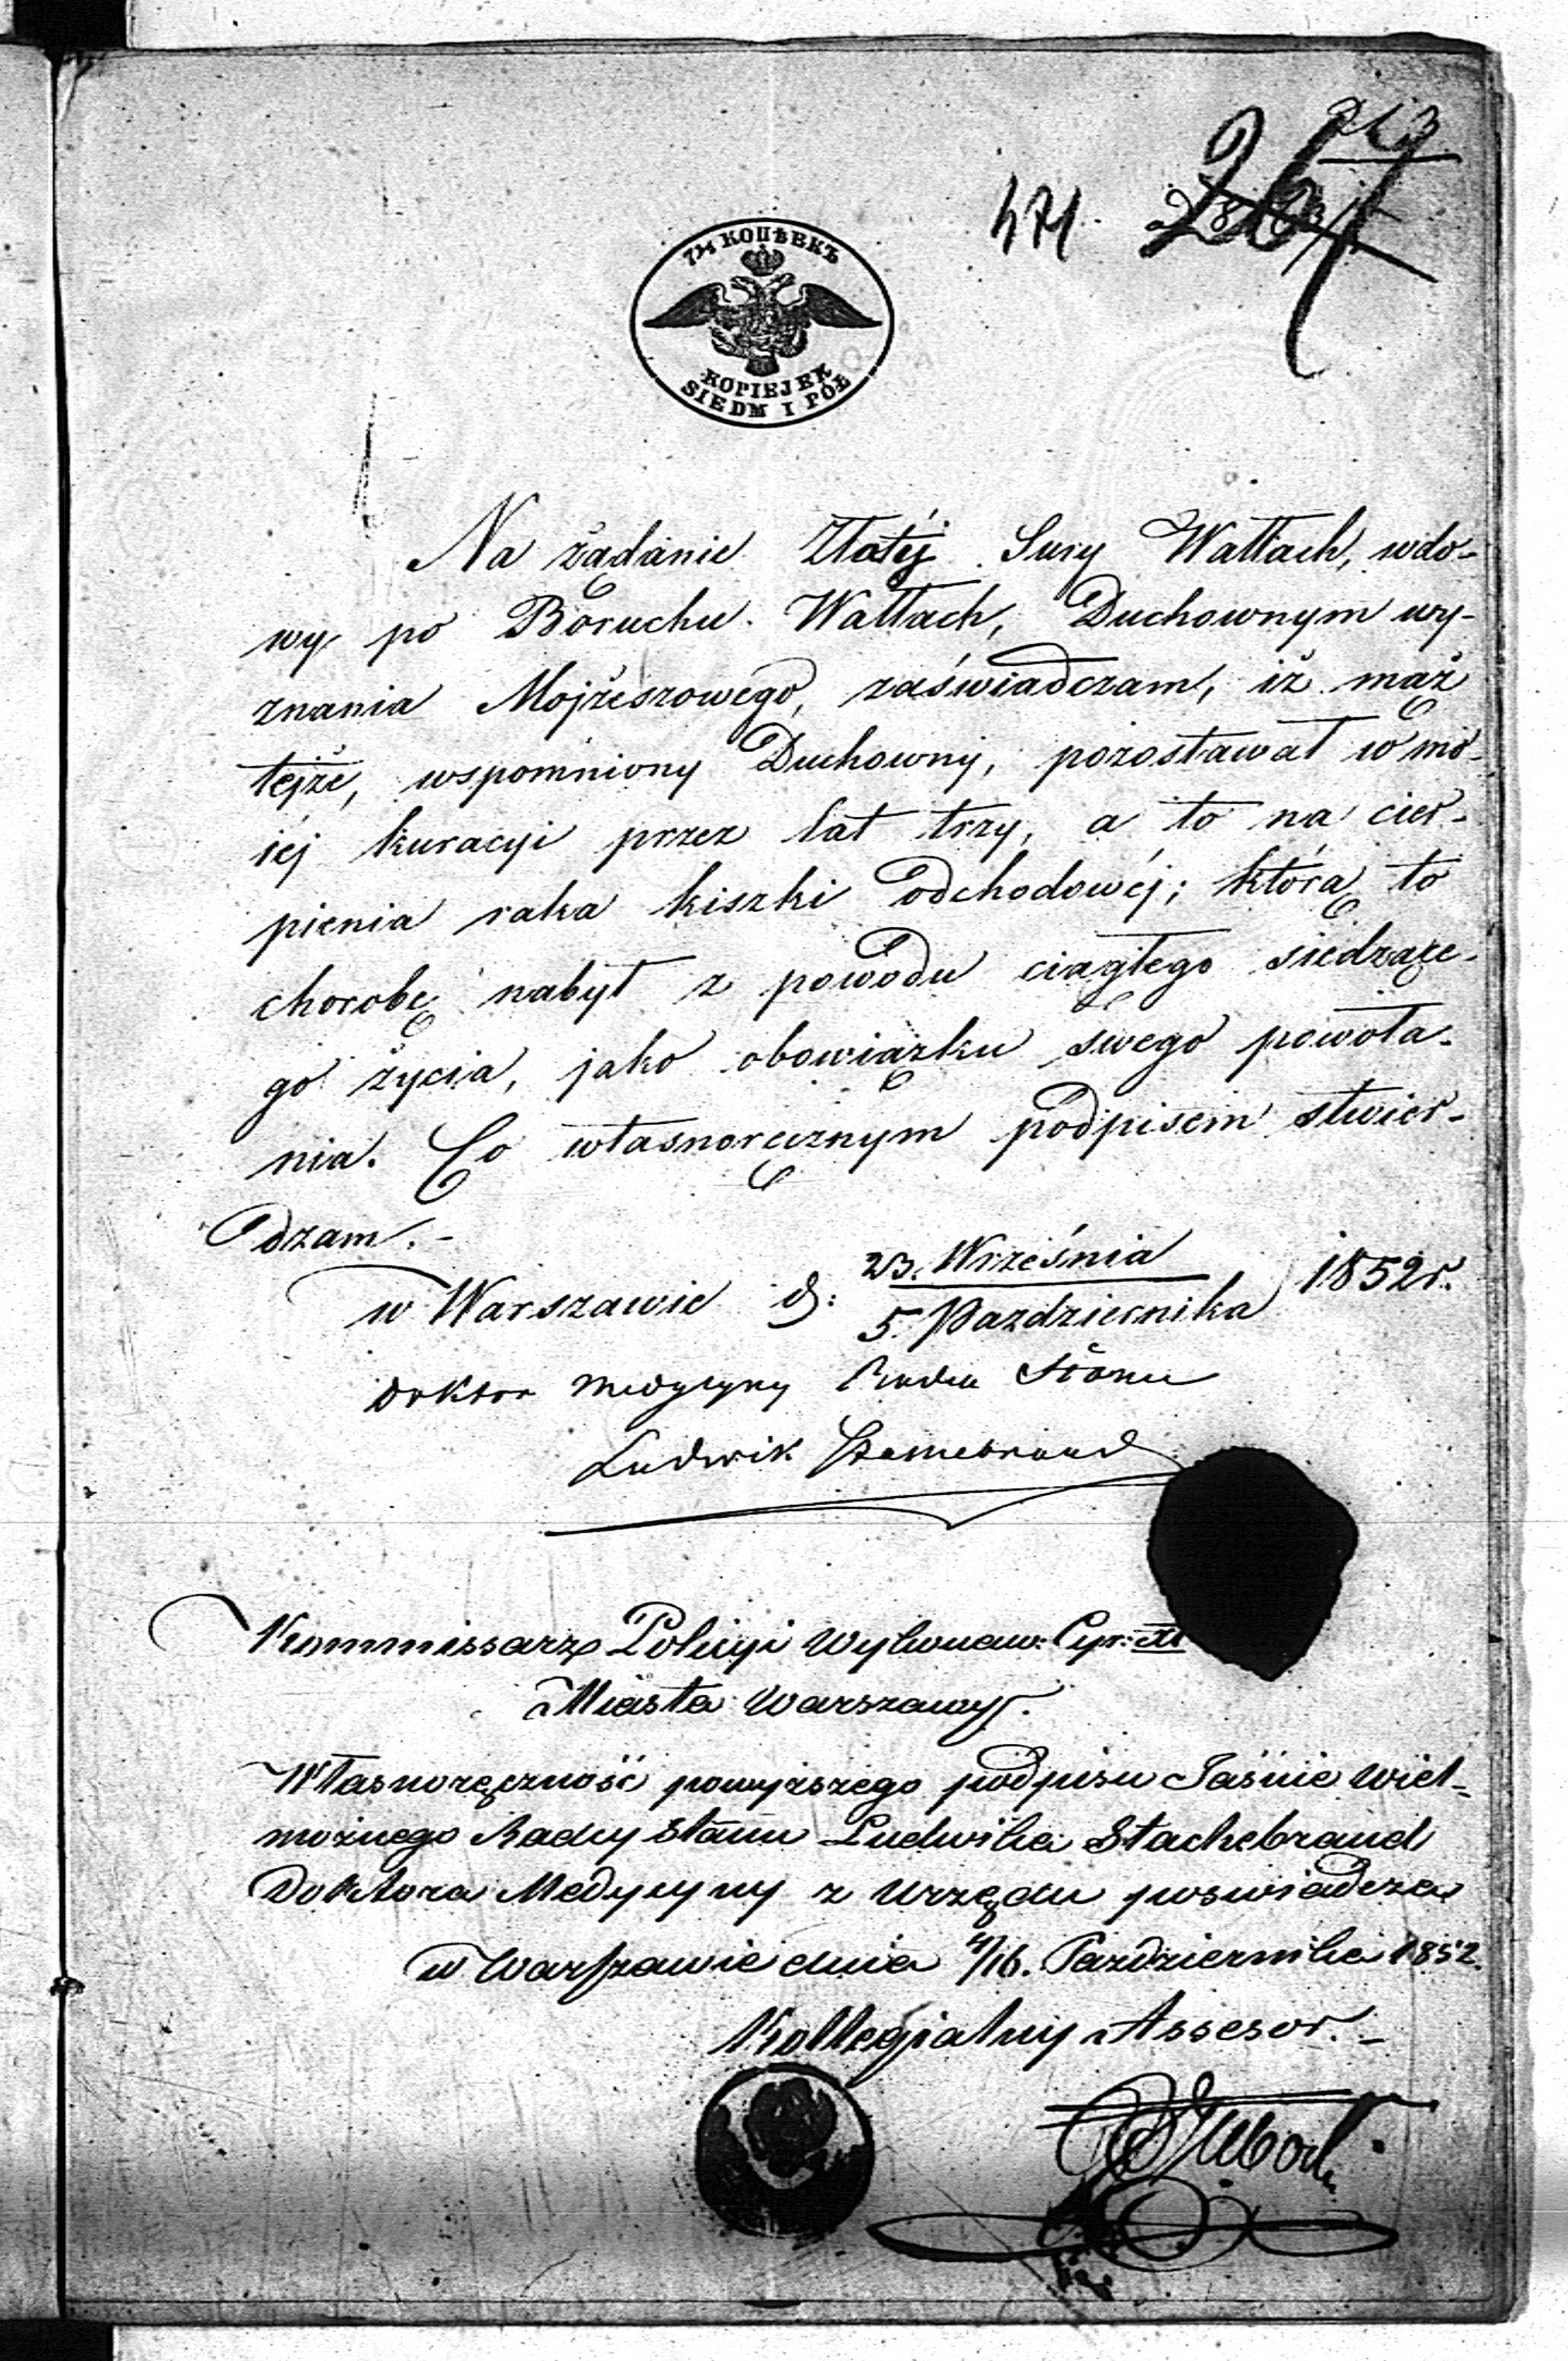 213
471.
267
7½ КОПѢЕКЪ
KOPIEJEK
SIEDM I PÓŁ
Na żądanie Złotéj Sury Wallach, wdo-
wy po Boruchu Wallach, Duchownym wy-
znania Mojżeszowego, zaświadczam, iż mąż
tejże, wspomniony Duchowny, pozostawał w mo-
iéj kuracyi przez lat trzy, a to na cier-
pienia raka kiszki odchodowéj; którą to
chorobę nabył z powodu ciągłego siedzące-
go życia, jako obowiązku swego powoła-
nia. Co własnoręcznym podpisem stwier-
dzam.-
w Warszawie d: 23. Września 1852 r.
5. Października
Doktor Medycyny Radca Stanu
Ludwik
Kommissarz Policyi Wykonaw: Cyr:
Miasta Warszawy.
Własnoręczność powyższego podpisu Jaśnie Wiel-
możnego Radcy Stanu Ludwika Stachebrand
Doktora Medycyny z Urzędu poświadcza
w Warszawie dnia 4/16. Października 1852.
Kollegialny Assesor.-